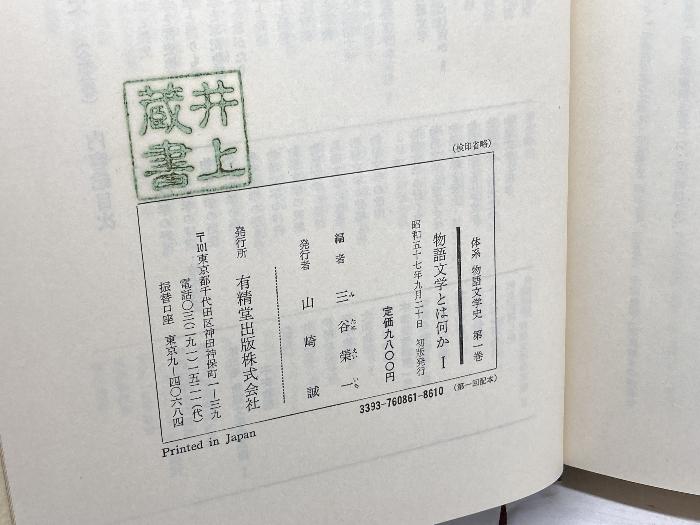 井上
蔵書
(検印省略)
体系 物語文学史 第一巻
物語文学とは何か Ⅰ
昭和五十七年九月二十日 初版発行
定価九八〇〇円
編者 三谷栄一
み たに えい いち
発行者 山崎誠
発行所 有精堂出版株式会社
〒101東京都千代田区神田神保町一ー三九
電話〇三(二九一)一五二一(代)
振替口座 東京九ー四〇六八四
3393-760861-8610 (第一回配本)
Printed in Japan